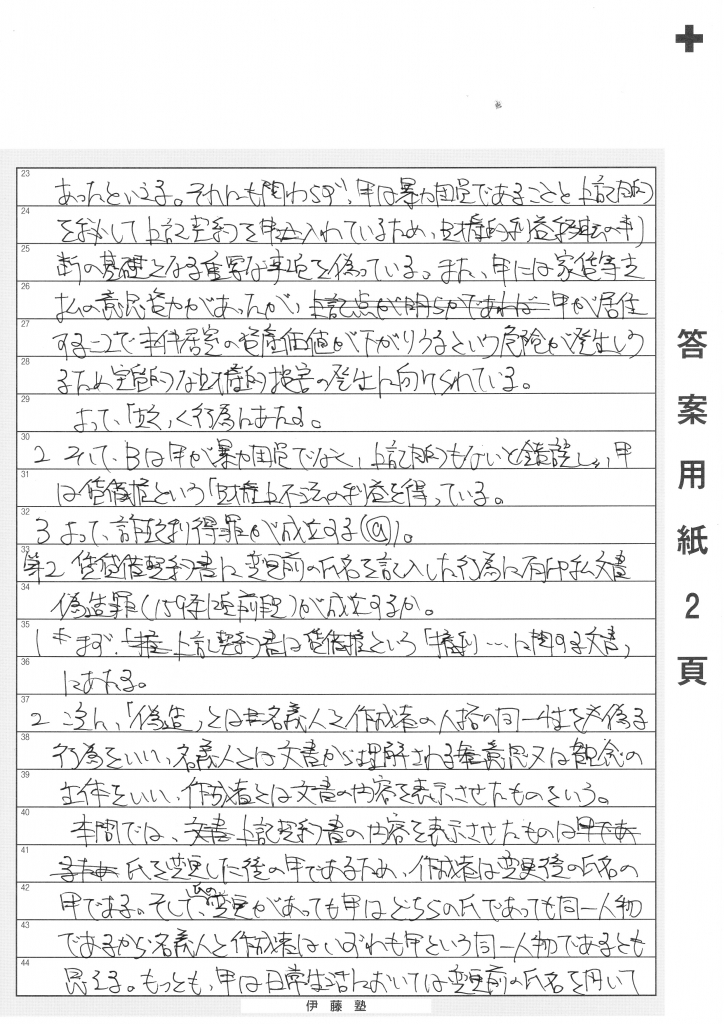 23 あったといえる。それにも関わらず、甲は暴力団員であることと上記目的
24 を秘して上記契約を申し入れているため、財産的利益移転の判
25 断の基礎となる重要な事項を偽っている。また、甲には家賃等支
26 払の意思資力があったが、上記点が明らかであれば 甲が居住
27 することで本件居室の資産価値が下がりうるという危険が発生しう
28 るため実質的な財産的損害の発生に向けられている。
29 よって、「欺」く行為にあたる。
30 2 そして、Bは甲が暴力団員でなく、上記目的もないと錯誤し、甲
31 は賃借権という「財産上不法の利益を得」ている。
32 3 よって、詐欺利得罪が成立する(ⓐ)。
33 第2 賃貸借契約書に変更前の氏名を記入した行為に有印私文書
34 偽造罪(159条1項前段)が成立するか。
35 1 まず、上記契約書は賃借権という「権利…に関する文書」
36 にあたる。
37 2 次に、「偽造」とは名義人と作成者の人格の同一性を偽る
38 行為をいい、名義人とは文書から理解される意思又は観念の
39 主体をいい、作成者とは文書の内容を表示させたものをいう。
40 本問では、文書 上記契約書の内容を表示させたものは甲であ
41 るため 氏を変更した後の甲であるため、作成者は変更後の氏名の
42 甲である。そして、氏の変更があっても甲はどちらの氏であっても同一人物
43 であるから名義人と作成者はいずれも甲という同一人物であるとも
44 思える。もっとも、甲は日常生活においては変更前の氏名を用いて
伊藤塾
答案用紙2頁